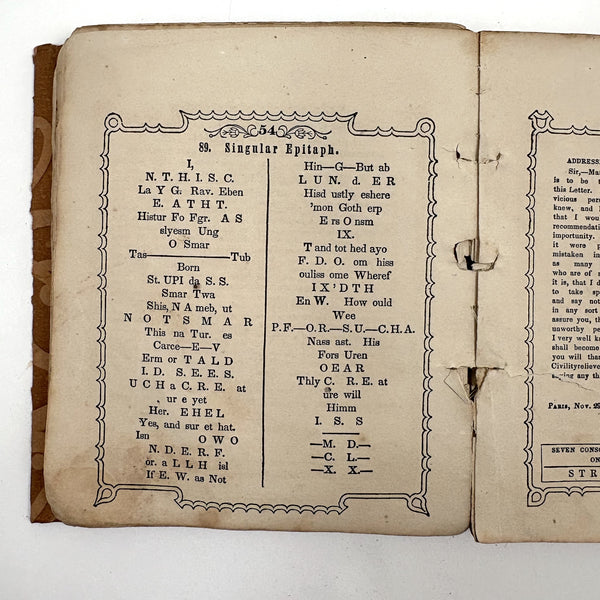 54
89. Singular Epitaph.
I,
N. T. H. I. S. C.
La Y G: Rav. Eben
E. A T H T.
Histur Fo Fgr. A S
slyesm Ung
O Smar
Tas——Tub
Born
St. UPI da S. S.
Smar Twa
Shis, N A meb, ut
N O T S M A R
This na Tur. es
Carce—E—V
Erm or T A L D
I. D. S. E. E. S.
U C H a C. R. E. at
ur e yet
Her. E H E L
Yes, and sur et hat.
Isn O W O
N. D. E. R. F.
or. a L L H isl
If E. W. as Not
Hin—G—But ab
L U N. d. E R
Hisd ustly eshere
'mon Goth erp
E rs O nsm
IX.
T and tot hed ayo
F. D. O. om hiss
ouliss ome Wheref
I X ' D T H
En W. How ould
Wee
P. F.—O R.—S U.—C H A.
Nass ast. His
Fors Uren
O E A R
Thly C. R. E. at
ure will
Himm
I. S. S
—M. D.—
—C. L.—
—X. X.—
ADDRESSE
Sir,—Ma
is to be s
this Letter.
vicious per
knew, and I
that I wou
recommendati
importunity.
it were p
mistaken in
as many
who are of
it is, that I d
to take sp
and say not
in any sort
assure you, th
unworthy pe
I very well k
shall become
you will than
Civilityrelieve
saying any th
PARIS, Nov. 22
SEVEN CONSO
ON
S T R